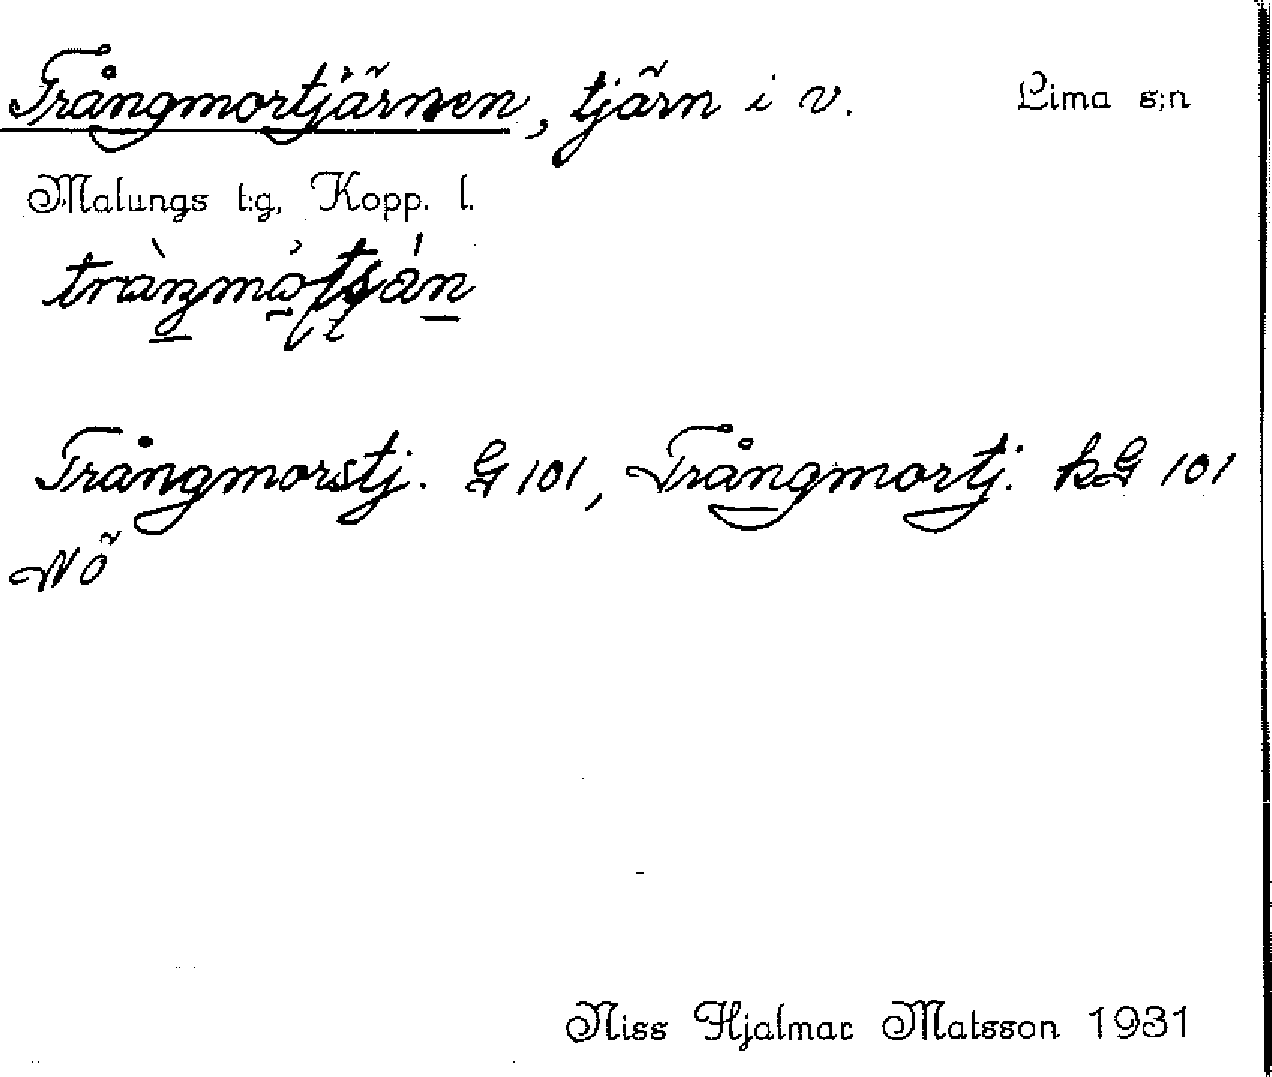 Trångmortjärnen, tjärn i v. Lima s:n
Malungs t:g, Kopp. l.
Trångmorstj. G 101, Trångmortj. kG 101
NÖ
Niss Hjalmar Matsson 1931